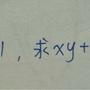 1，求xy+